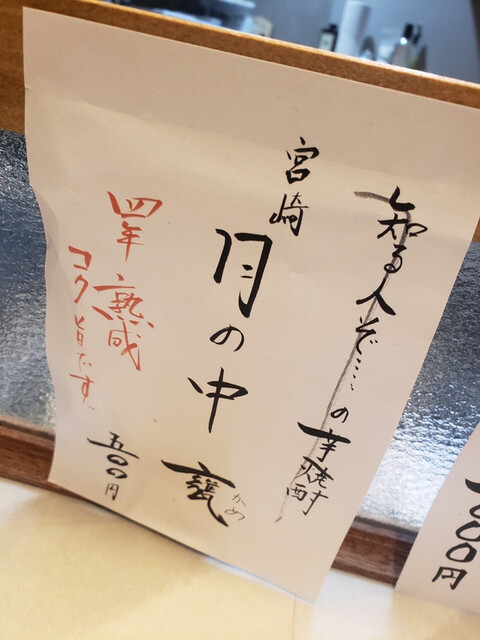 知る人ぞ……の芋焼酎
宮崎
月の中 甕
かめ
四年熟成
コク旨です。
五〇〇円
000円